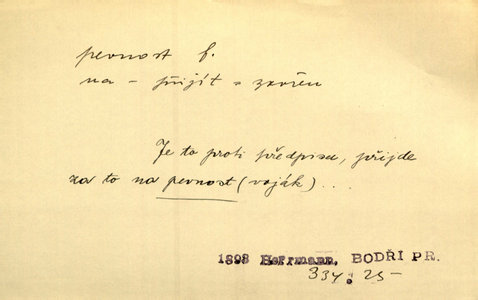 pevnost f.
na – přijít s
Je to proti předpisu, přijde
za to na pevnost (voják) ...
1898 Herrmann, BODŘI PR.
334: 25–